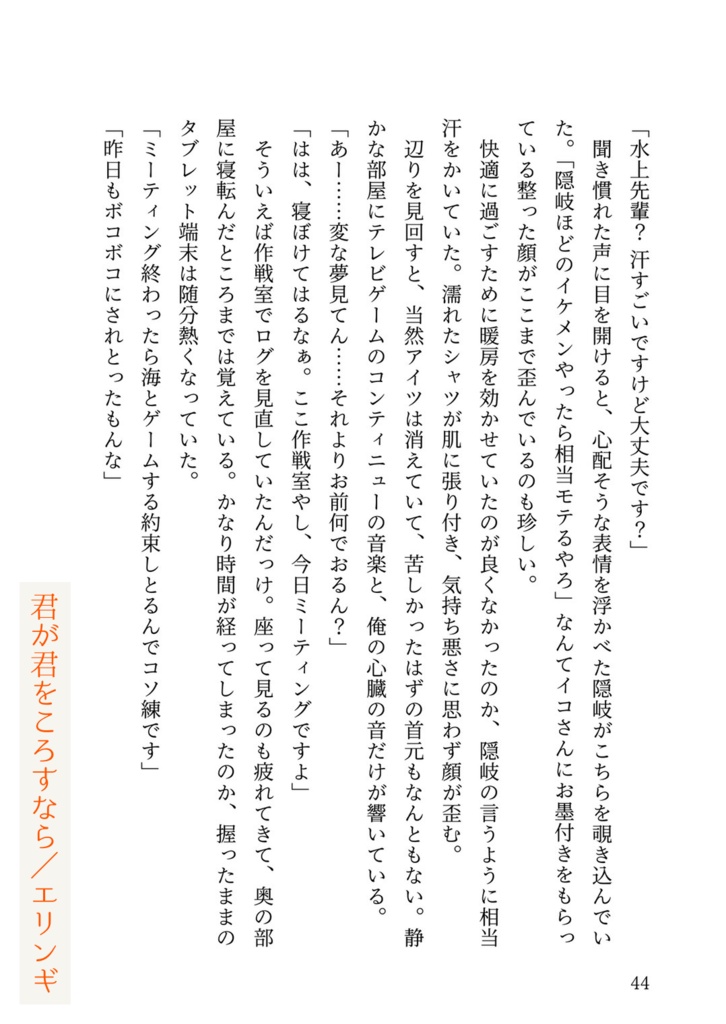 「水上先輩？ 汗すごいですけど大丈夫です？」
　聞き慣れた声に目を開けると、心配そうな表情を浮かべた隠岐がこちらを覗き込んでい
た。「隠岐ほどのイケメンやったら相当モテるやろ」なんてイコさんにお墨付きをもらっ
ている整った顔がここまで歪んでいるのも珍しい。
　快適に過ごすために暖房を効かせていたのが良くなかったのか、隠岐の言うように相当
汗をかいていた。濡れたシャツが肌に張り付き、気持ち悪さに思わず顔が歪む。
　辺りを見回すと、当然アイツは消えていて、苦しかったはずの首元もなんともない。静
かな部屋にテレビゲームのコンティニューの音楽と、俺の心臓の音だけが響いている。
「あー……変な夢見てん……それよりお前何でおるん？」
「はは、寝ぼけてはるなぁ。ここ作戦室やし、今日ミーティングですよ」
　そういえば作戦室でログを見直していたんだっけ。座って見るのも疲れてきて、奥の部
屋に寝転んだところまでは覚えている。かなり時間が経ってしまったのか、握ったままの
タブレット端末は随分熱くなっていた。
「ミーティング終わったら海とゲームする約束しとるんでコソ練です」
「昨日もボコボコにされとったもんな」
君が君をころすなら／エリンギ
44